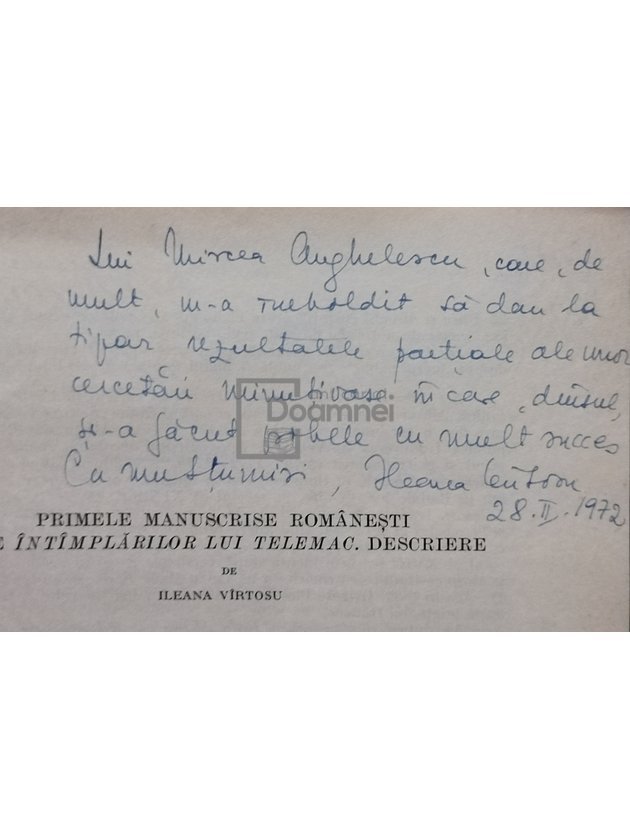 Lui Mircea Anghelescu, care, de
mult, m-a îmboldit să dau la
tipar rezultatele parțiale ale unor
cercetări minuțioase în care, dînsul,
și-a făcut  cu mult succes
Cu mulțumiri, Ileana Vîrtosu
28.II.1972
Doamnei
PRIMELE MANUSCRISE ROMÂNEȘTI
E ÎNTÎMPLĂRILOR LUI TELEMAC. DESCRIERE
DE
ILEANA VÎRTOSU